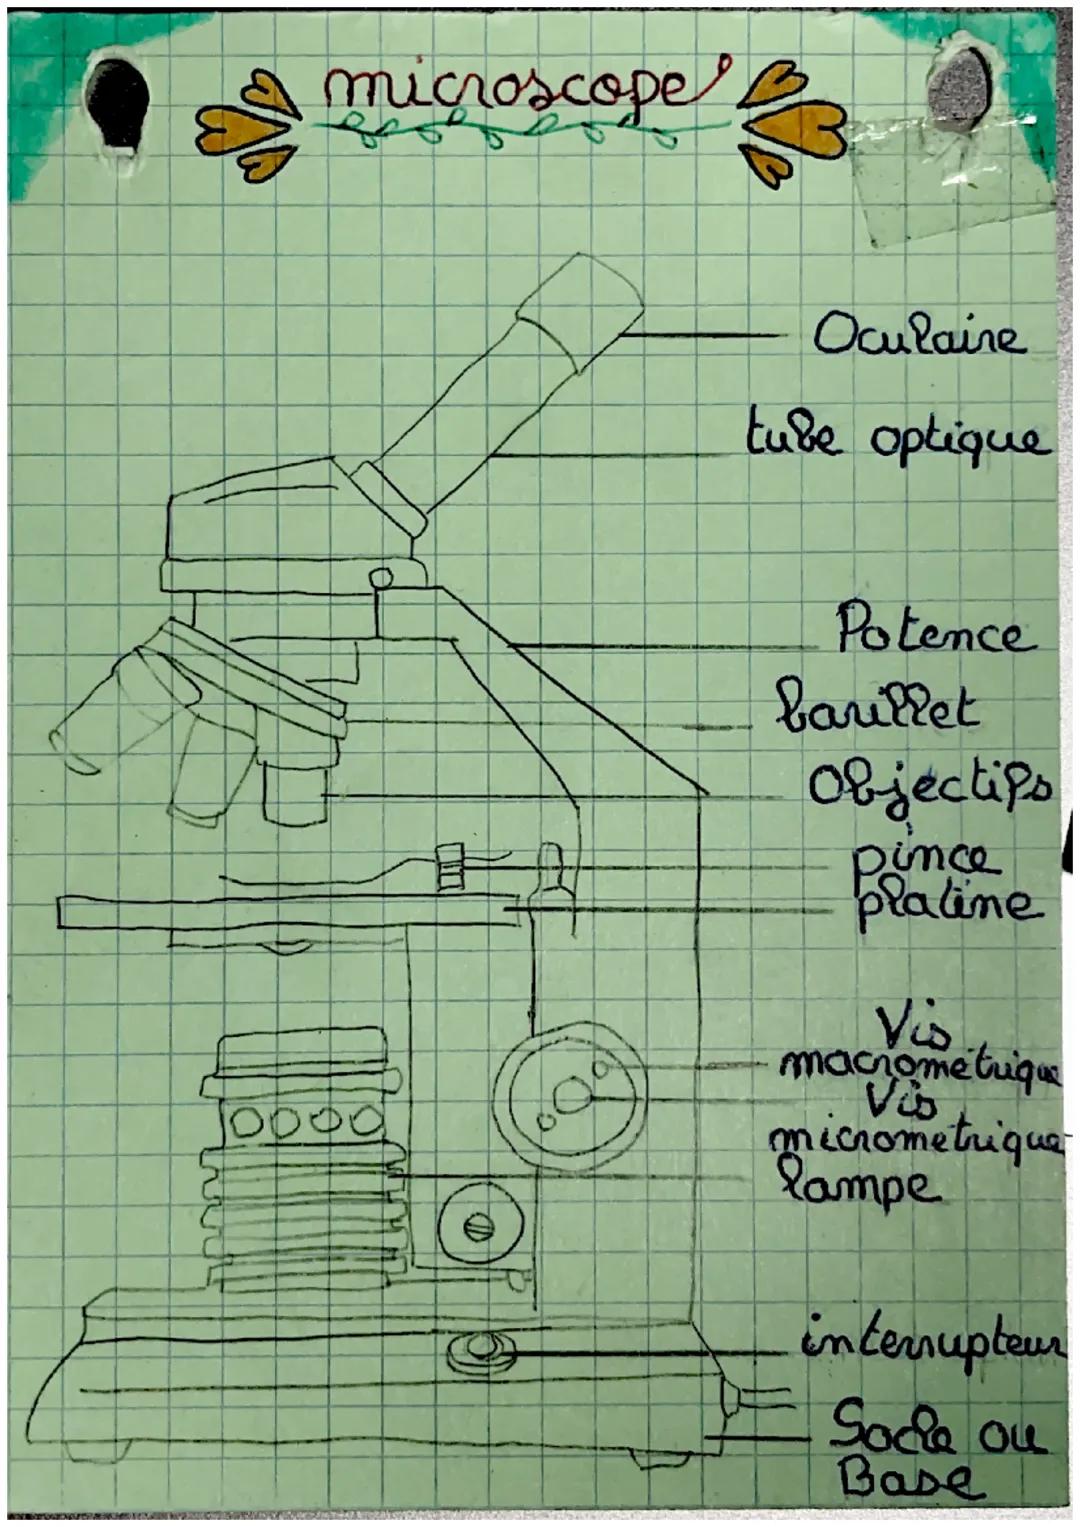 microscope
Oculaire
tube optique
Potence
barillet
Objectifs
pince
platine
Vis
macrometrique
Vis
micrometrique
lampe
interrupteur
Socle ou
Base